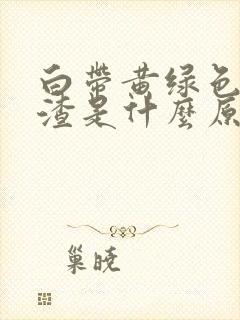 白带黄绿色
渣是什麽原
巢晓